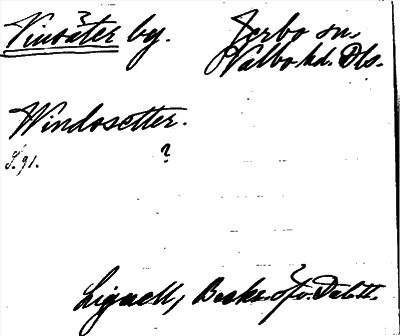 Vinsäter by. Järbo sn,
Valbo hd. Dls.
Windosetter.
S. 91. ?
Lignell, Beskr. öfv. Dalsl.